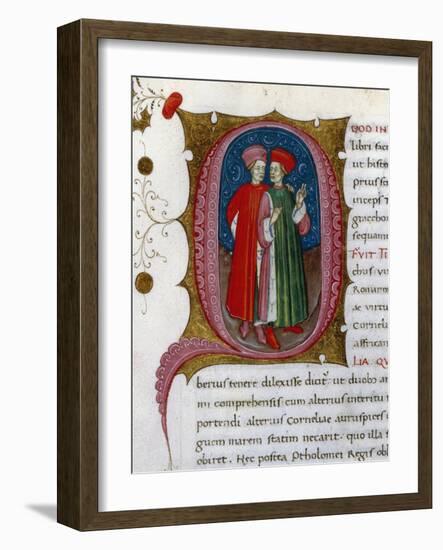 VOD IN
libri faci
ut histo
prius sci
gracchor
sequam
FVIT TI
chus
Romanor
ae virtu
Corneliu
affrican
LIA QV
berius tenere dilexisse dicit: ut duobo an
mi comprehensis cum alterius interitu
portendi alterius Corneliae autruspices
guem marem statim necarit. quo illa
obiret. Hec postea Ptholomei Regis obl